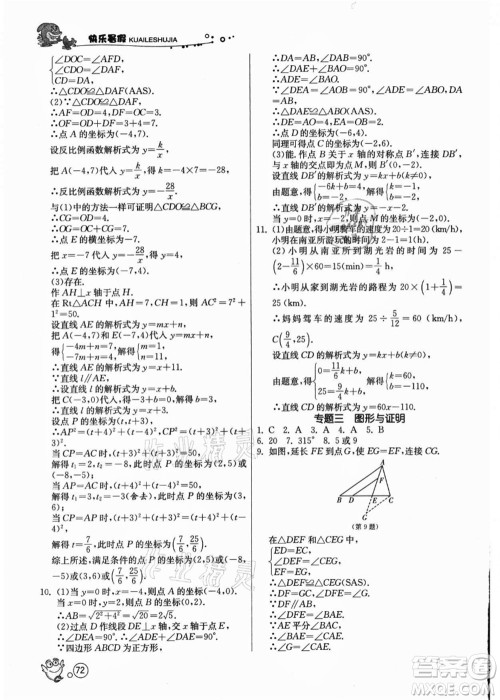 快乐暑假 KUAILESHUJIA
∠DOC=∠AFD,
∠CDO=∠DAF,
CD=DA,
∴△CDO≌△DAF(AAS).
(2)∵△CDO≌△DAF,
∴AF=OD=4,DF=OC=3.
∴点A的坐标为(-4,7).
设反比例函数解析式为y=k/x,
把A(-4,7)代入y=k/x,得k=-4×7=-28.
∴反比例函数解析式为y=-28/x.
与(1)中的方法一样可证得△CDO≌△BCG.
∴CG=OD=4.
∴OG=OC+CG=7.
∴点E的横坐标为-7.
把x=-7代入y=-28/x,得y=4.
(3)存在.
作AH⊥x轴于点H.
在Rt△ACH中,AC²=AH²+CH²=7²+1²=50.
设直线AE的解析式为y=mx+n,
得{-4m+n=7, -7m+n=4,解得{m=1, n=11.
∴直线AE的解析式为y=x+11.
∵l∥AE,
∴设直线l的解析式为y=x+b.
把C(-3,0)代入,得-3+b=0,解得b=3.
∴直线l的解析式为y=x+3.
设点P的坐标为(t,t+3).
当CP=CA时,(t+3)²+(t+3)²=50,
解得t₁=2,t₂=-8,此时点P的坐标为(2,5)或(-8,-5).
当AP=AC时,(t+4)²+(t-4)²=50,
解得t₁=3,t₂=-3(舍去),此时点P的坐标为(3,6).
当CP=AP时,(t+3)²+(t+3)²=(t+4)²+(t-4)²,
解得t=7/6,此时点P的坐标为(7/6,25/6).
综上所述,满足条件的点P的坐标为(2,5)或(-8,-5)或(3,6)或(7/6,25/6).
10.(1)当y=0时,x=-2,即点A的坐标为(-2,0).
当x=0时,y=4,即点B的坐标为(0,4).
∴AB=√(2²+4²)=√20=2√5.
(2)过点D作直线段DE垂直x轴于点E,
∴∠DEA=90°.∴∠DAE+∠ADE=90°.
∵四边形ABCD为正方形,
∴DA=AB,∠DAB=90°.
∴∠DAE+∠BAO=90°.
∴∠ADE=∠BAO.
∵∠DEA=∠AOB=90°,
∴△DEA≌△AOB(AAS).
∴DE=AO=2,AE=BO=4.
∴OE=6.
∴点D的坐标为(-6,2).
同理可得C的坐标为(-4,6).
(3)能.作点B关于x轴的对称点B′,连接DB′,与x轴的交点即为点M.
∴点B′的坐标为(0,-4).
设直线DB′的解析式为y=kx+b(k≠0),
由题意,得{-6k+b=2, b=-4,解得{k=-1, b=-4.
∴直线DB′的解析式为y=-x-4.
当y=0时,x=-4,则点M的坐标为(-4,0).
11.(1)由题意,得小明骑车的速度为20÷1=20(千米/时),
小明在南亚所游玩的时间为2-1=1(时).
(2)由题意,得
(2-11/6)×60=15(分)=1/4 h,
∴小明从家到湖光岩的路程为20×(1+1/4)=25(千米).
∴妈妈驾车的速度为25÷25/60=60(千米/时).
C(9/4,25).
设直线CD的解析式为y=kx+b(k≠0),
由题意,得{0=11/6k+b, 25=9/4k+b,解得{k=60, b=-110.
∴直线CD的解析式为y=60x-110.
专题三 图形与证明
1. C 2. A 3. A 4. A 5. B
6. 20 7. 315° 8. 5或9
9. 如图,延长FE到点G,使EG=EF,连接CG.
A
F
B D E C
G
(第9题)
在△DEF和△CEG中,
ED=EC,
∠DEF=∠CEG,
EF=EG,
∴△DEF≌△CEG(SAS).
∴DF=GC,∠DFE=∠G.
∵DF∥AB,
∴∠DFE=∠BAE.
∵DF=AC,
∴GC=AC.
∴∠G=∠CAE.
∴∠BAE=∠CAE.
72
作业精灵
作业精灵
答案圈
MXQE.COM